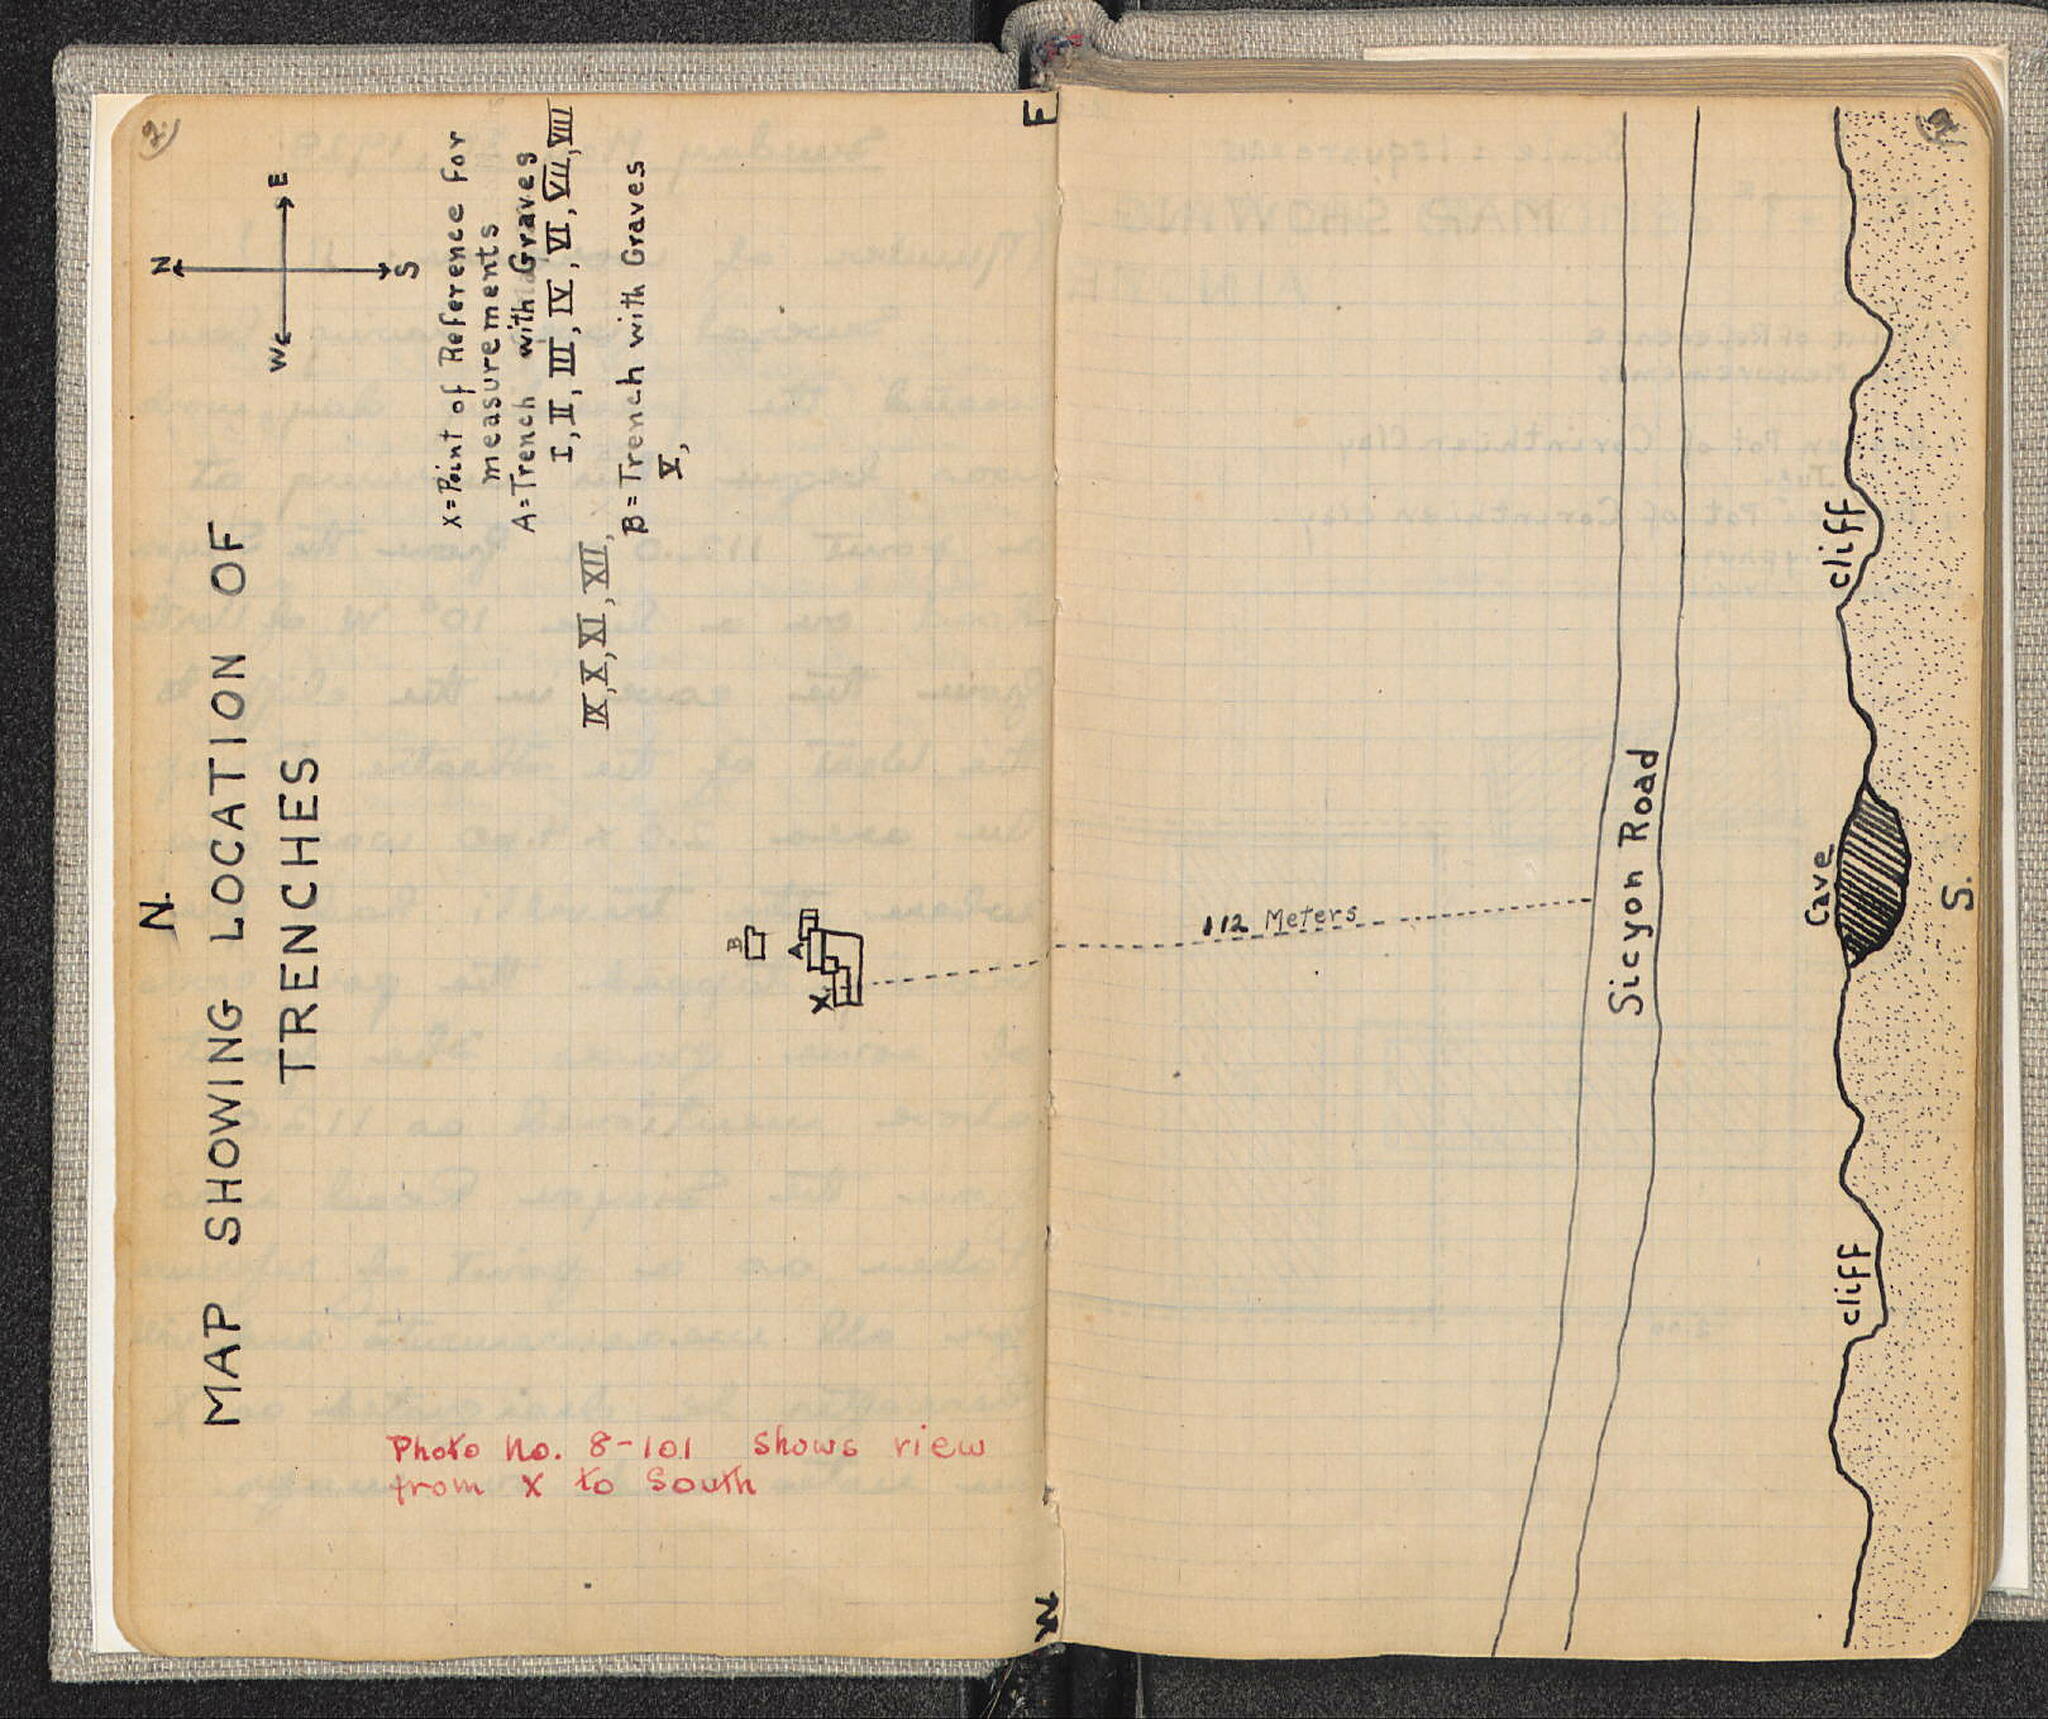 N.
MAP SHOWING LOCATION OF
TRENCHES
N
W E
S
X = Point of Reference for
measurements
A = Trench with Graves
I, II, III, IV, VI, VII, VIII
IX, X, XI, XII,
B = Trench with Graves
V,
B
A
X
Photo No. 8-101 shows view
from X to South
E
W
112 Meters
Sicyon Road
cliff
Cave
cliff
S.